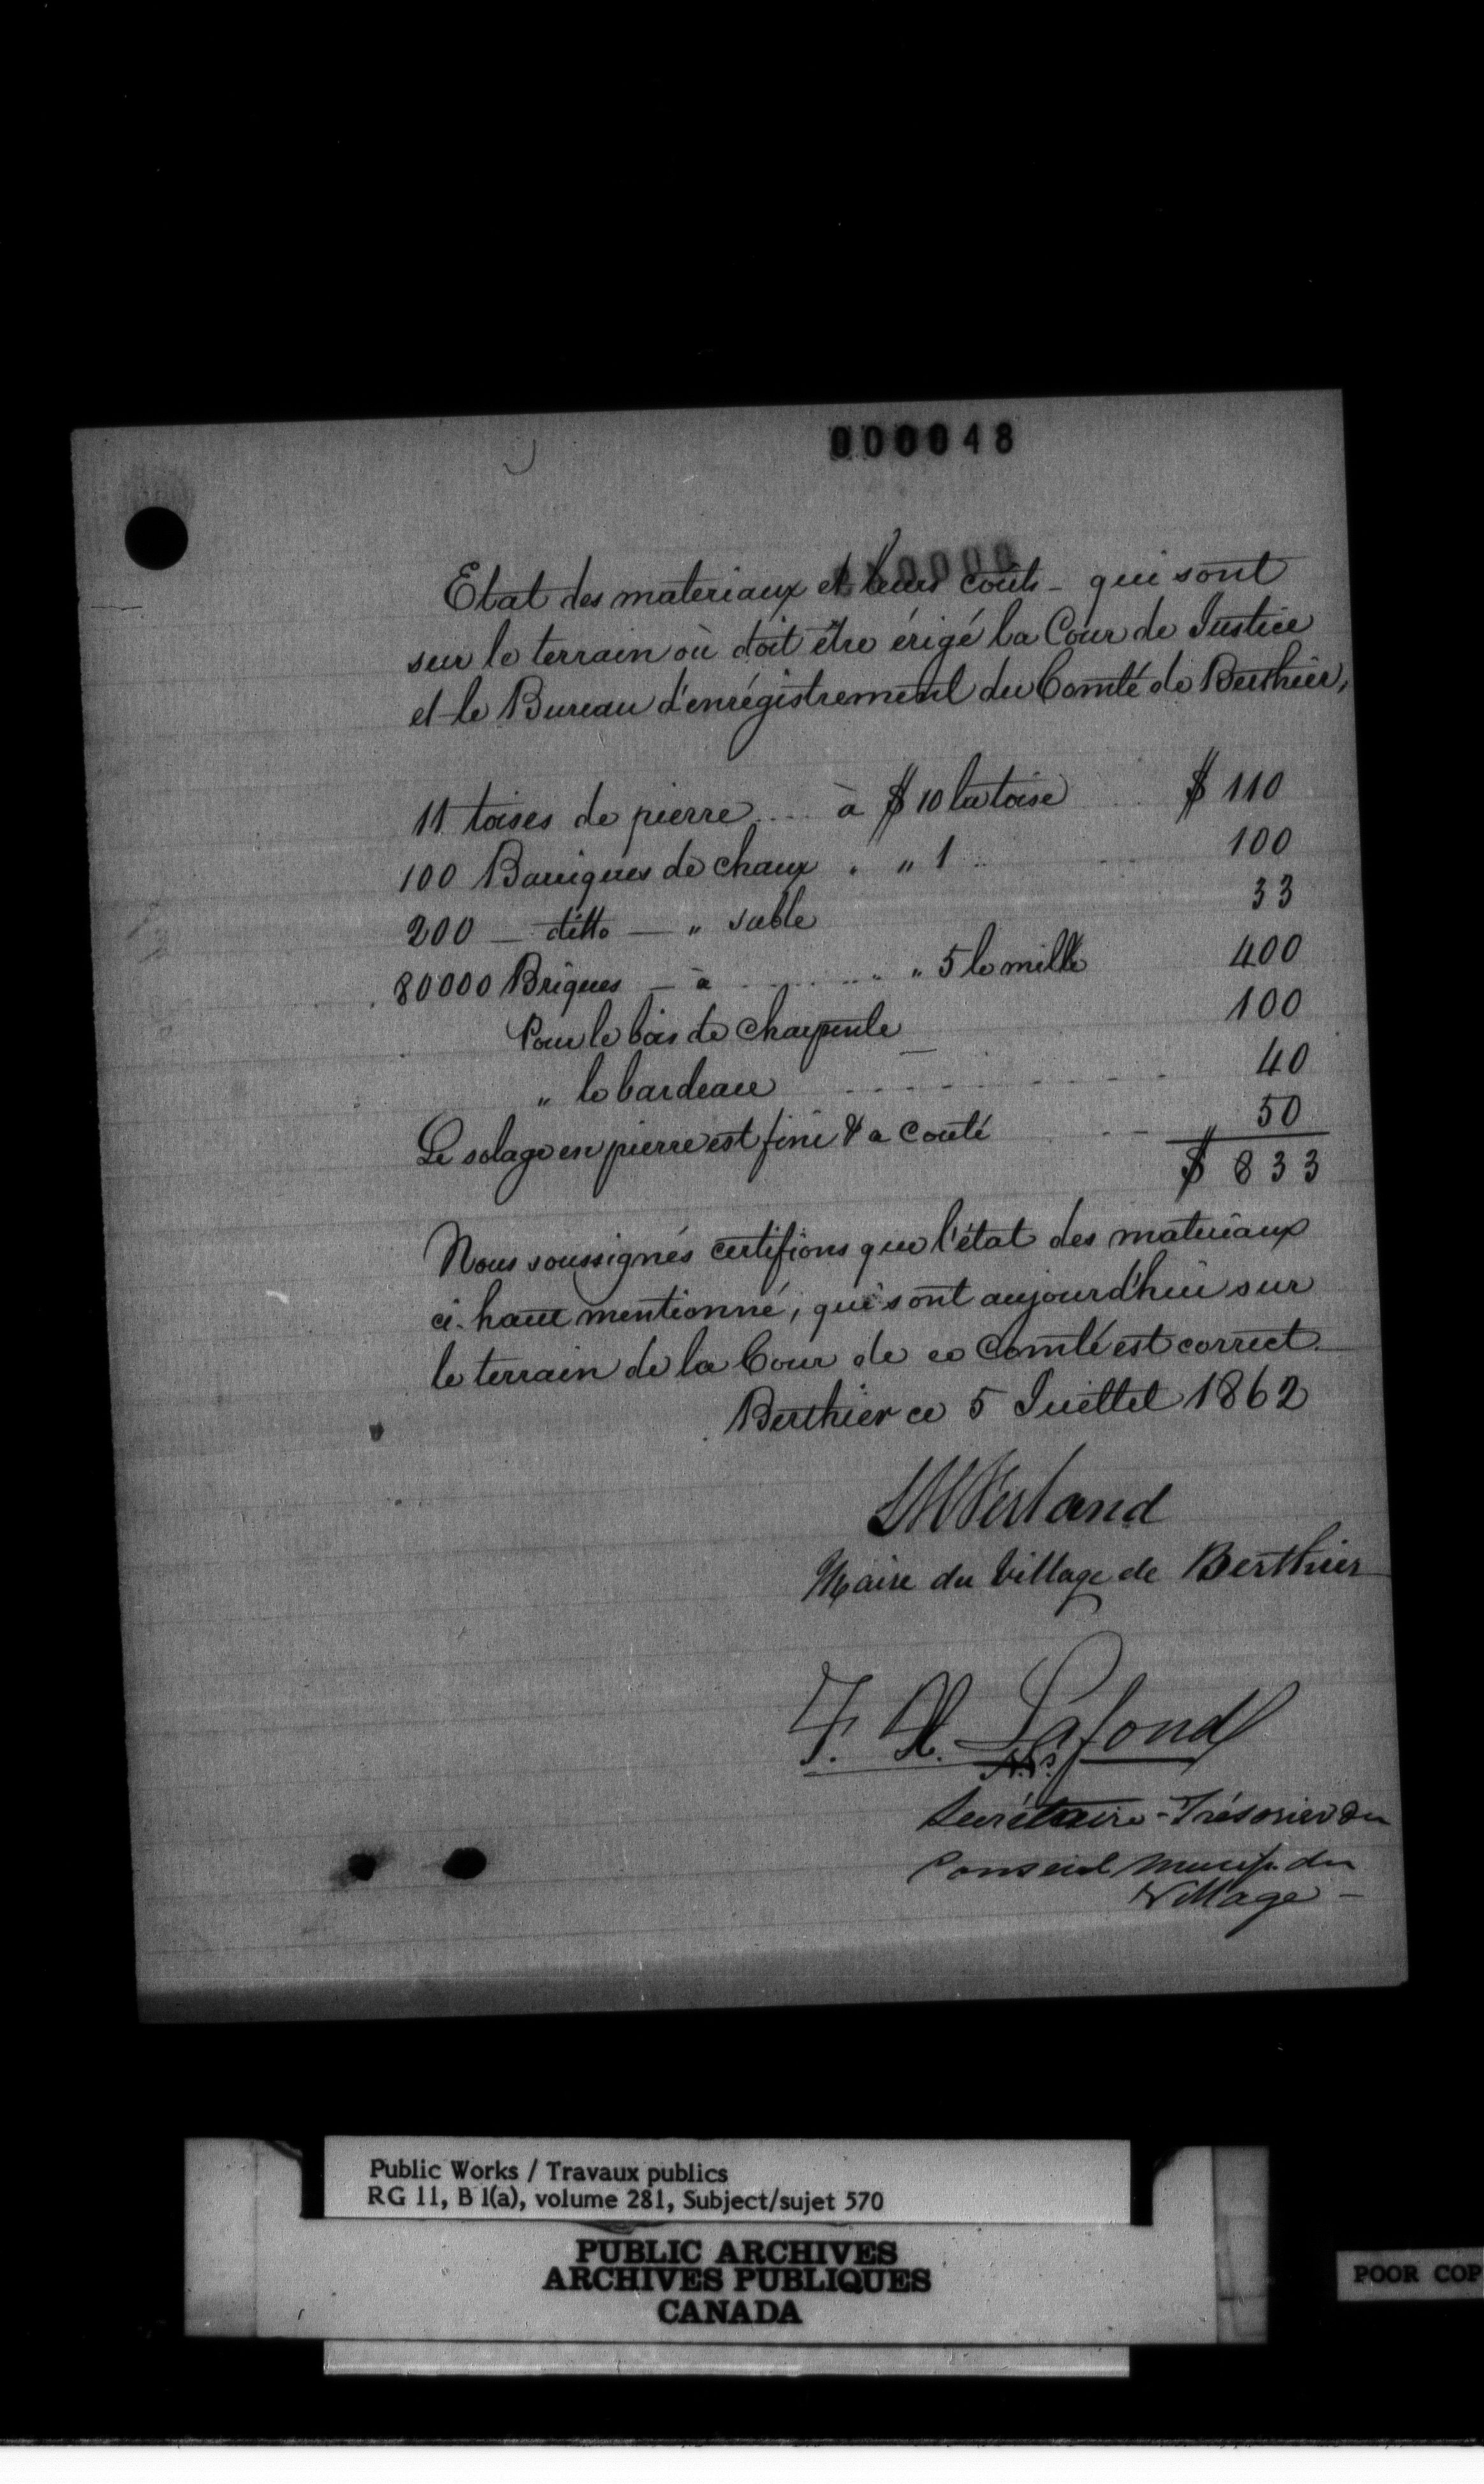 000048
Etat des materiaux et leurs coûts - qui sont
sur le terrain où doit être érigé la Cour de Justice
et le Bureau d'enrégistrement du Comté de Berthier,
11 toises de pierre .... à $ 10 la toise .. $ 110
100 Barriques de chaux . " 1 .. 100
200 — ditto — " sable 33
80000 Briques — à ........ " 5 le mille 400
Pour le bois de charpente — 100
" le bardeau ........ 40
Le solage en pierre est fini & a couté .. 50
$ 833
Nous soussignés certifions que l'état des materiaux
ci-haut mentionné, qui sont aujourd'hui sur
le terrain de la Cour de ce Comté est correct.
Berthier ce 5 Juillet 1862
Ferland
Maire du Village de Berthier
F. X. Lafond
N.P.
Secrétaire-Trésorier du
Conseil Munip. du
Village —
Public Works / Travaux publics
RG 11, B 1(a), volume 281, Subject/sujet 570
PUBLIC ARCHIVES
ARCHIVES PUBLIQUES
CANADA
POOR COP